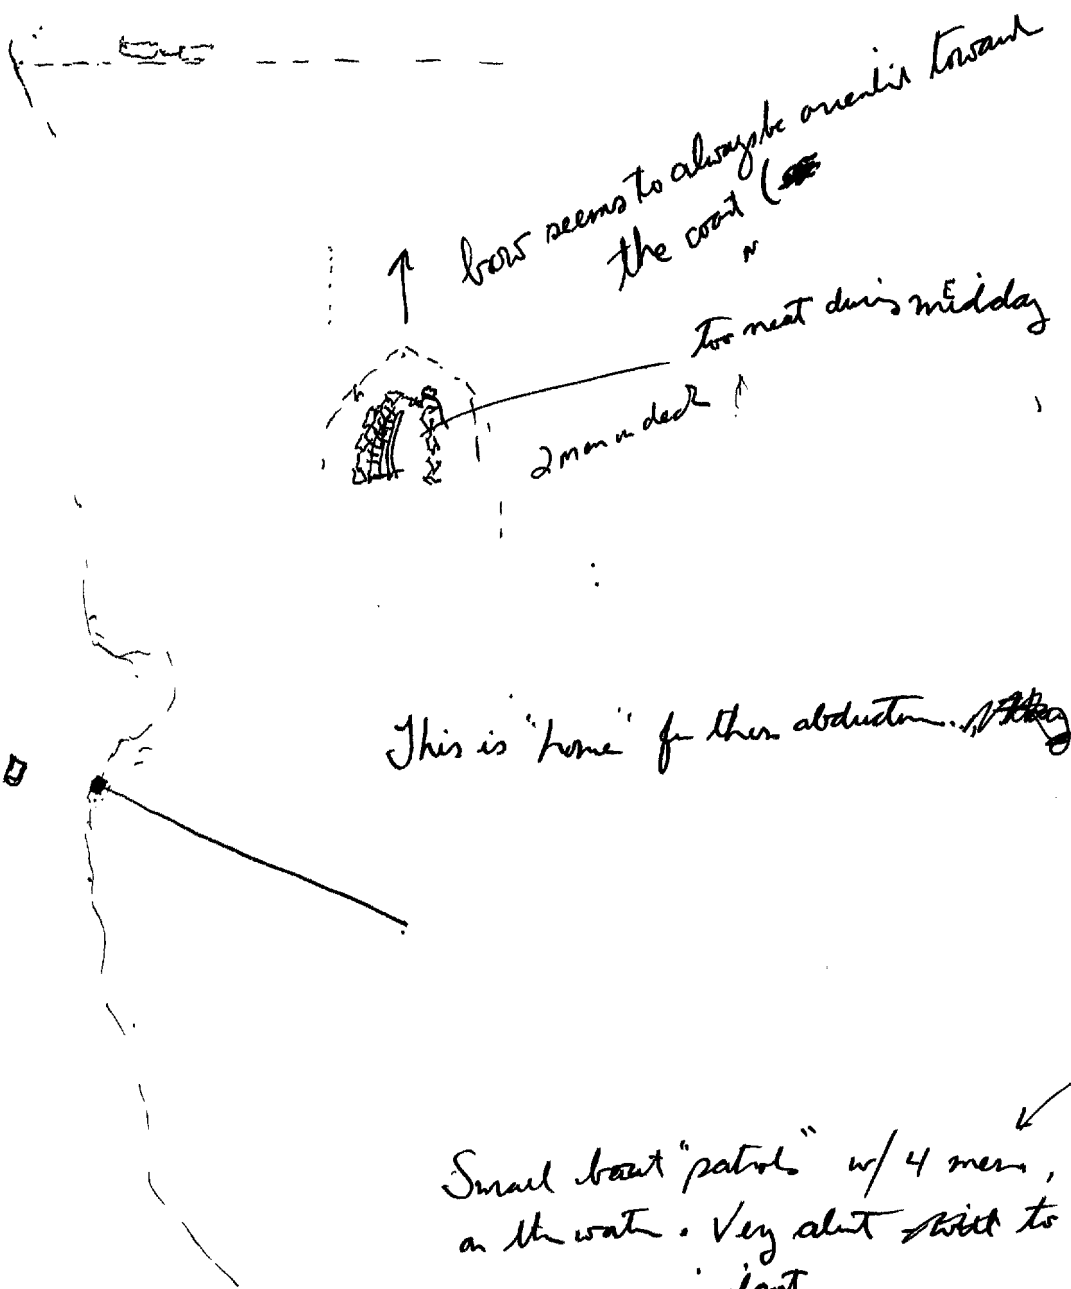 bow seems to always be oriented toward
the coast (
N
too neat during mEidday
2 men on deck
This is "home" for these abductors.
Small boat "patrols" w/ 4 men,
on the water. Very alert to